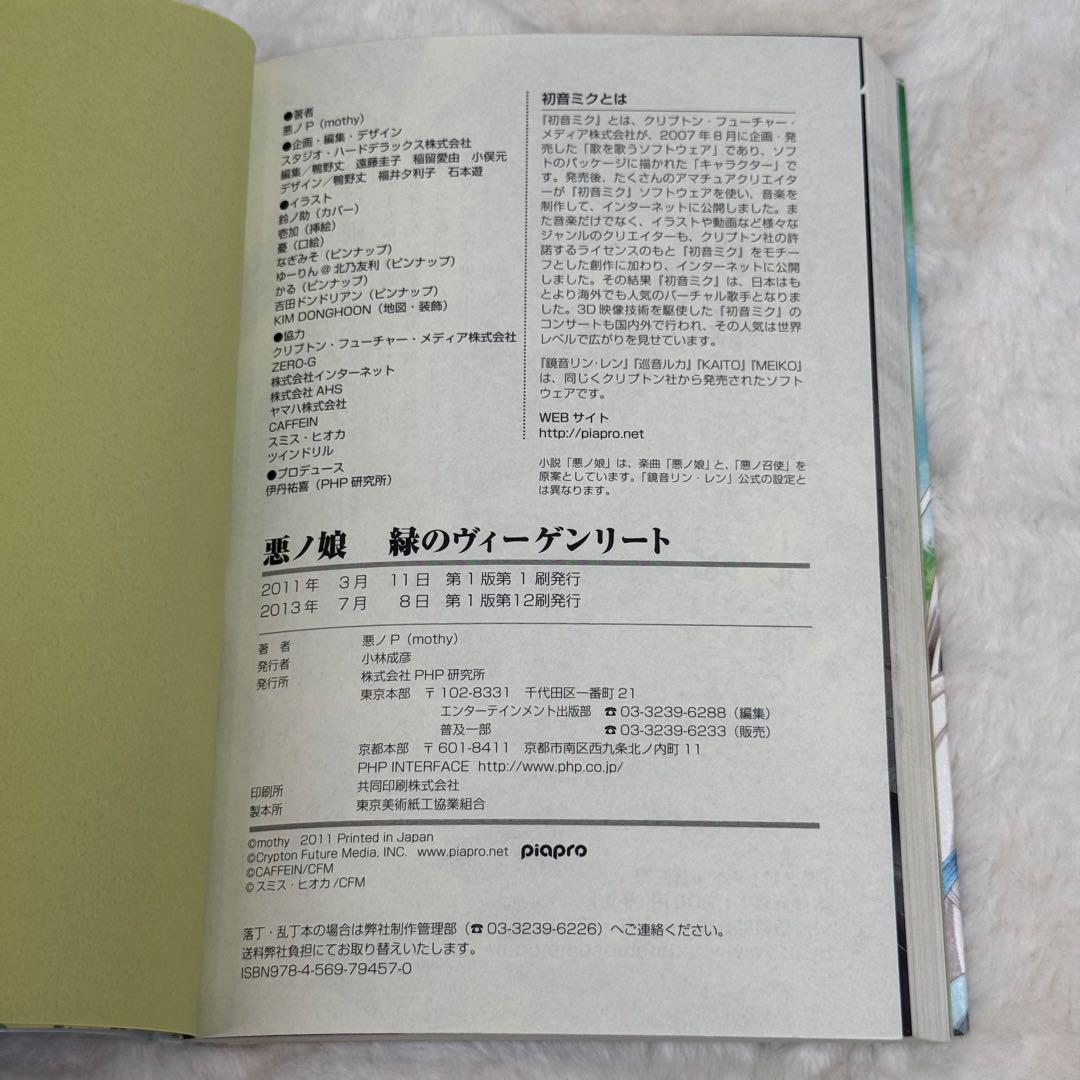 ●著者
悪ノP（mothy）
●企画・編集・デザイン
スタジオ・ハードデラックス株式会社
編集／鴨野丈　遠藤圭子　稲留愛由　小俣元
デザイン／鴨野丈　福井夕利子　石本遊
●イラスト
鈴ノ助（カバー）
壱加（挿絵）
憂（口絵）
なぎみそ（ピンナップ）
ゆーりん@北乃友利（ピンナップ）
かる（ピンナップ）
吉田ドンドリアン（ピンナップ）
KIM DONGHOON（地図・装飾）
●協力
クリプトン・フューチャー・メディア株式会社
ZERO-G
株式会社インターネット
株式会社AHS
ヤマハ株式会社
CAFFEIN
スミス・ヒオカ
ツインドリル
●プロデュース
伊丹祐喜（PHP研究所）
初音ミクとは
『初音ミク』とは、クリプトン・フューチャー・
メディア株式会社が、2007年8月に企画・発
売した「歌を歌うソフトウェア」であり、ソフ
トのパッケージに描かれた「キャラクター」で
す。発売後、たくさんのアマチュアクリエイター
が『初音ミク』ソフトウェアを使い、音楽を
制作して、インターネットに公開しました。ま
た音楽だけでなく、イラストや動画など様々な
ジャンルのクリエイターも、クリプトン社の許
諾するライセンスのもと『初音ミク』をモチー
フとした創作に加わり、インターネットに公開
しました。その結果『初音ミク』は、日本はも
とより海外でも人気のバーチャル歌手となりま
した。3D映像技術を駆使した『初音ミク』の
コンサートも国内外で行われ、その人気は世界
レベルで広がりを見せています。
『鏡音リン・レン』『巡音ルカ』『KAITO』『MEIKO』
は、同じくクリプトン社から発売されたソフト
ウェアです。
WEBサイト
http://piapro.net
小説「悪ノ娘」は、楽曲「悪ノ娘」と、「悪ノ召使」を
原案としています。「鏡音リン・レン」公式の設定と
は異なります。
悪ノ娘　緑のヴィーゲンリート
2011年　3月　11日　第1版第1刷発行
2013年　7月　8日　第1版第12刷発行
著　者　悪ノP（mothy）
発行者　小林成彦
発行所　株式会社PHP研究所
東京本部　〒102-8331　千代田区一番町21
エンターテインメント出版部　☎03-3239-6288（編集）
普及一部　☎03-3239-6233（販売）
京都本部　〒601-8411　京都市南区西九条北ノ内町11
PHP INTERFACE　http://www.php.co.jp/
印刷所　共同印刷株式会社
製本所　東京美術紙工協業組合
©mothy　2011 Printed in Japan
©Crypton Future Media, INC.　www.piapro.net　piapro
©CAFFEIN/CFM
©スミス・ヒオカ/CFM
落丁・乱丁本の場合は弊社制作管理部（☎03-3239-6226）へご連絡ください。
送料弊社負担にてお取り替えいたします。
ISBN978-4-569-79457-0